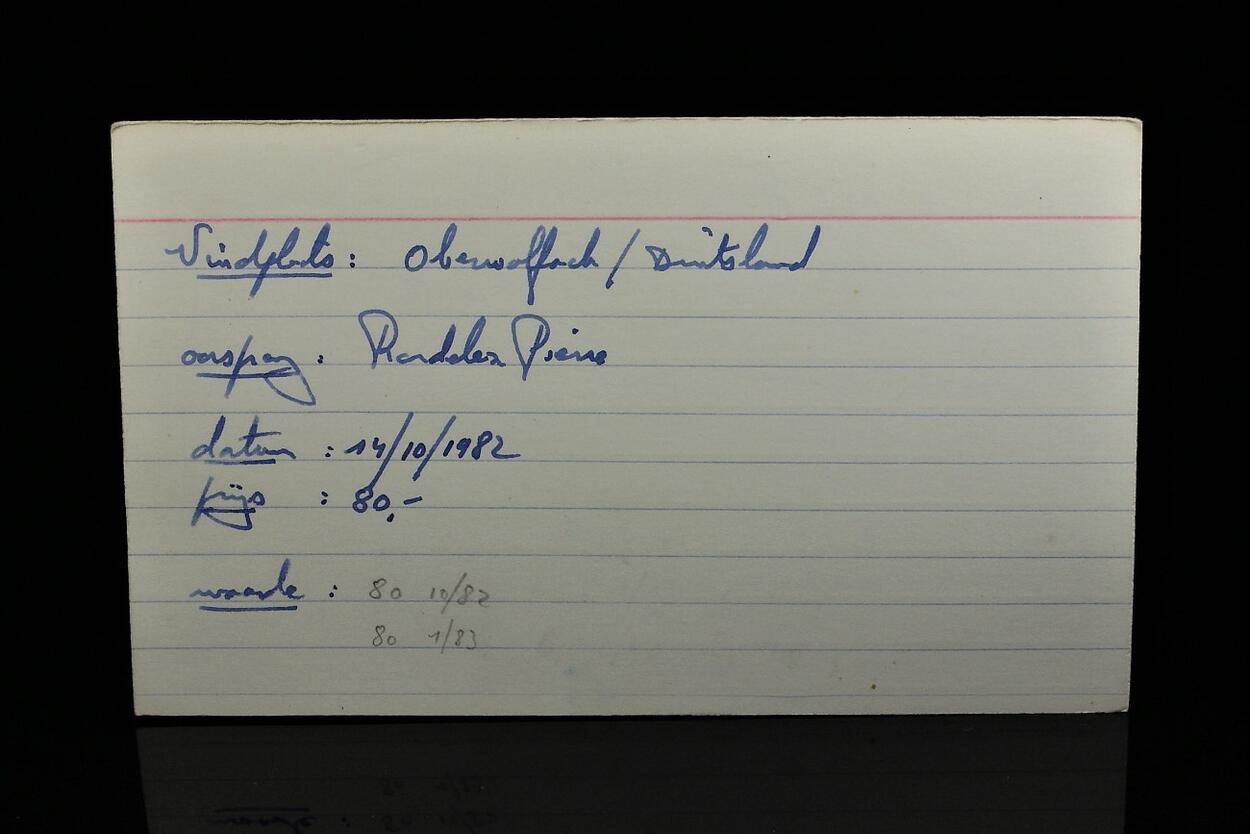 Vindplaats: Oberwolfach / Duitsland
oorsprong: Pierre
datum : 14/10/1982
prijs : 80,-
waarde : 80 10/82
80 1/83